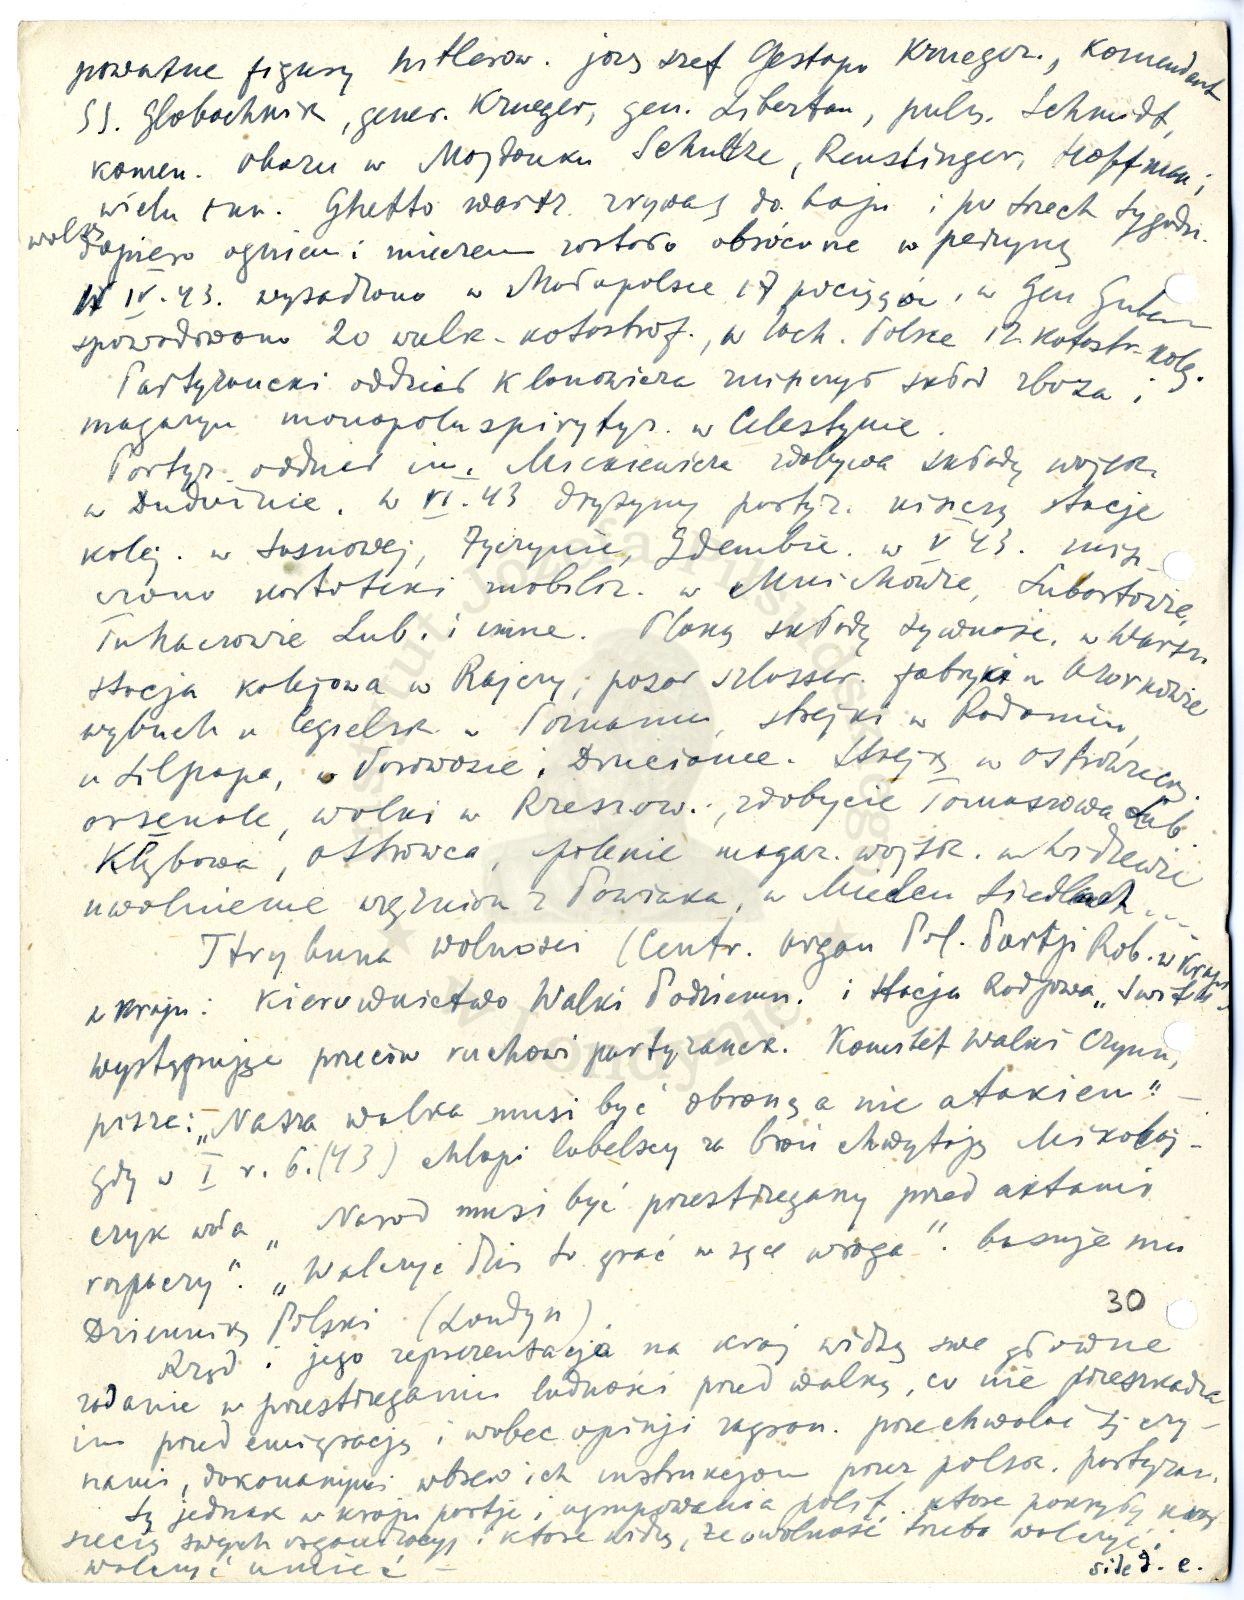 poważne figury hitlerow. jozy szef Gestapo Krueger., Komendant
SS. Globochnik, gener. Krueger, gen. Libertau, pułk. Schmidt,
komen. obozu w Majdanku Schultze, Renstinger, Hoffman i
wielu inn. Ghetto warsz. zrywa się do boju i po trzech tygodn.
walki dopiero ogniem i mieczem zostało obrócone w perzynę
W IV.43. wysadzono w Małopolsce 17 pociągów, w Gen Gubern
spowodowano 20 walk. katastrof., w Zach. Polsce 12 katastr. kolej.
Partyzancki oddział Klonowicza zniszczył skład zboża i
magazyn monopolu spirytyz. w Celestynie.
Partyz. oddział im. Mickiewicza zdobywa składy wojsk.
w Dudwinie. w VI.43 drużyny partyz. niszczą stacje
kolej. w Sosnowej, Życzynie, Gdembie. w V 43. znisz-
czono kartoteki mobiliz. w Mnichowie, Lubartowie,
Tuhaczowie Lub. i inne. Płoną składy żywnośc. w Warsz.
stacja kolejowa w Rajczy, pożar szlosser. fabryki w Ozorkowie
wybuch u Cegielsk w Poznaniu, strejki w Radomiu,
u Lilpopa, w Parowozie i Druciance. Strejk w Ostrowieckiej
arsenale, walki w Rzeszow., zdobycie Tomaszowa Lub.
Kłębowa, Ostrowca, palenie magaz. wojsk. w Widzewie
uwolnienie więźniów z Pawiaka, w Mielcu Siedlcach...
Trybuna wolności (Centr. organ Pol. Partji Rob. w kraju
w kraju: Kierownictwo Walki Podziemn. i Stacja Radjowa „Świt"
występuje przeciw ruchowi partyzanck. Komitet Walki Czynn,
pisze: „Nasza walka musi być obroną a nie atakiem" —
gdy w I r. b. (43) chłopi lubelscy za broń chwytają Mikołaj-
czyk woła „Naród musi być przestrzegany przed aktami
rozpaczy". „Walczyć dziś to grać w rękę wroga". basuje mu
Dziennik Polski (Londyn)
30
Rząd i jego reprezentacja na kraj widzą swe główne
zadanie w przestrzeganiu ludności przed walką, co nie przeszkadza
im przed emigracją i wobec opinji zagran. przechwalać się czy-
nami, dokonanymi wbrew ich instrukcjom przez polsk. partyzan.
Są jednak w kraju partje i ugrupowania polit. które pokryły kraj
siecią swych organizacyj i które widzą, że o wolność trzeba walczyć i
walczyć umieć —